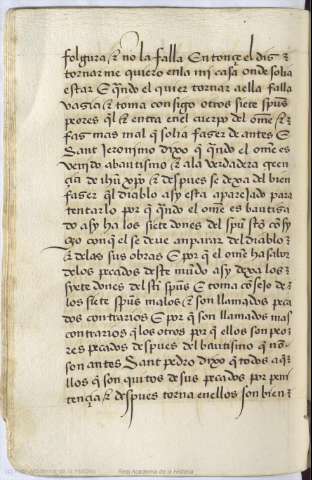 folgura, ⁊ no la falla Entonçe dis ⁊
tornar me quiero en la mi casa onde solia
estar E qndo el quiere tornar a ella falla
vasia ⁊ toma consigo otros siete spũs
peores ql ⁊ entra en el cuerpo del ome ⁊
fas mas mal q solia faser de antes E
Sant Jeronimo dixo q qndo el ome es
venido a bautismo ⁊ a la verdadera creen
çia de ihũ xpõ ⁊ despues se dexa del bien
faser ql diablo asy esta aparejado para
tentarlo por q qndo el ome es bautisa
do asy ha los siete dones del spũ sto cõsy
go con ql se deve anparar del diablo
⁊ de las sus obras E por q el ome ha sabor
de los pecados deste mũdo asy dexa los
syete dones del sti spũs E toma cõsejo de
los siete spũs malos ⁊ son llamados peca
dos contrarios E por q son llamados mas
contrarios q los otros por q ellos son peo
res pecados despues del bautismo q nõ
son antes Sant pedro dixo q todos aq
llos q son quitos de sus pecados por peni
tençia ⁊ despues torna en ellos son bien
Real Academia de la Historia